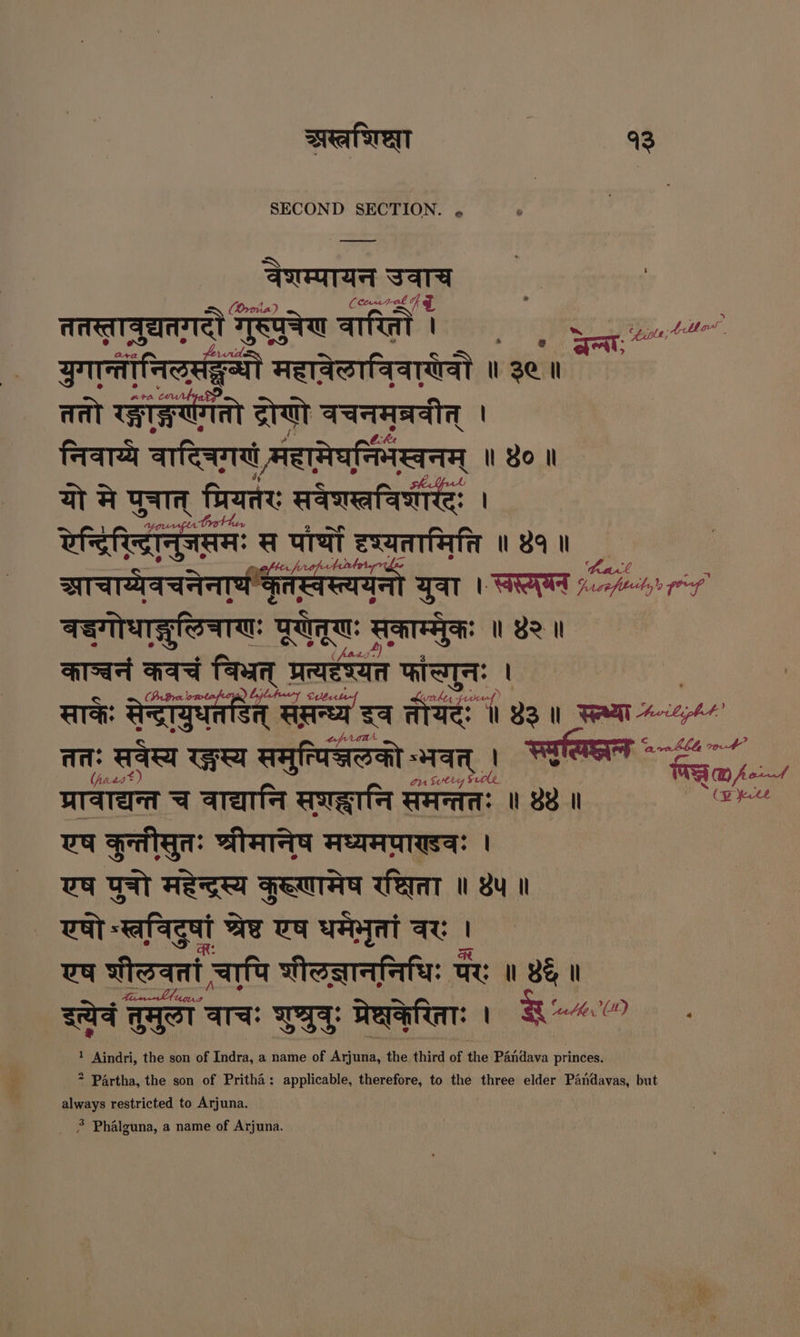 अस्त्रशिक्षा १३
SECOND SECTION.
वैशम्पायन उवाच
(Drona)
ततस्तावुद्यतगदौ गुरुपुत्रेण वारितौ ।
वेला,
युगान्तानिलसङ्क्षुब्धौ महावेलाविवार्णवौ ॥ ३९ ॥
ततो रङ्गाङ्गणगतो द्रोणो वचनमब्रवीत् ।
like
निवार्य्य वादित्रगणं महामेघनिभस्वनम् ॥ ४० ॥
skilful
यो मे पुत्रात् प्रियतरः सर्वशस्त्रविशारदः ।
younger brother
ऐन्द्रिरिन्द्रानुजसमः स पार्थो दृश्यतामिति ॥ ४१ ॥
आचार्य्यवचनेनाथ कृतस्वस्त्ययनो युवा । स्वस्त्ययन
बद्धगोधाङ्गुलित्राणः पूर्णतूणः सकार्म्मुकः ॥ ४२ ॥
काञ्चनं कवचं बिभ्रत् प्रत्यदृश्यत फाल्गुनः ।
सार्कः सेन्द्रायुधतडित् ससन्ध्य इव तोयदः ॥ ४३ ॥ सन्ध्या twilight
ततः सर्वस्य रङ्गस्य समुत्पिञ्जलको ऽभवत् । समुत्पिञ्जल
on every side
पिञ्ज
प्रावाद्यन्त च वाद्यानि सशङ्खानि समन्ततः ॥ ४४ ॥
एष कुन्तीसुतः श्रीमानेष मध्यमपाण्डवः ।
एष पुत्रो महेन्द्रस्य कुरूणामेष रक्षिता ॥ ४५ ॥
एषो ऽस्त्रविदुषां श्रेष्ठ एष धर्मभृतां वरः ।
एष शीलवतां चापि शीलज्ञाननिधिः परः ॥ ४६ ॥
tumultuous
इत्येवं तुमुला वाचः शुश्रुवुः प्रेक्षकेरिताः । ईर
1 Aindri, the son of Indra, a name of Arjuna, the third of the Pándava princes.
2 Pártha, the son of Prithá: applicable, therefore, to the three elder Pándavas, but
always restricted to Arjuna.
3 Phálguna, a name of Arjuna.